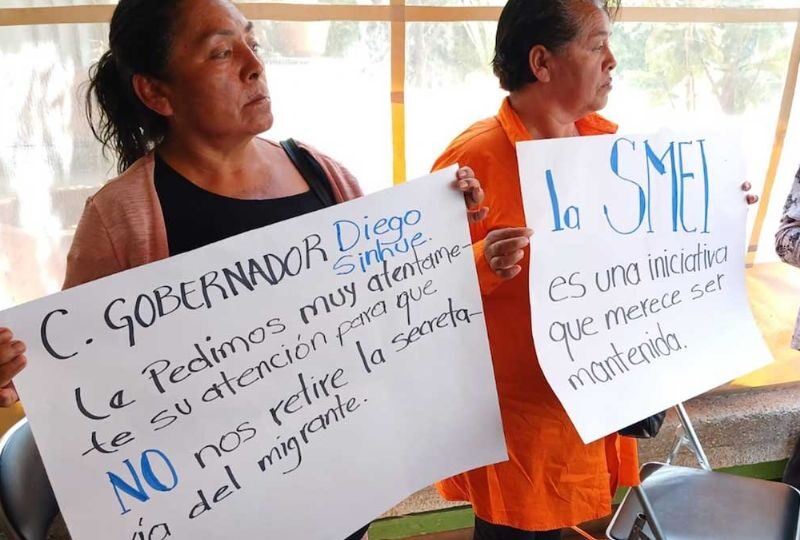 C. GOBERNADOR Diego
Sinhue.
Le Pedimos muy atentame-
te su atención para que
NO nos retire la secreta-
ía del migrante.
la SMEI
es una iniciativa
que merece ser
mantenida.